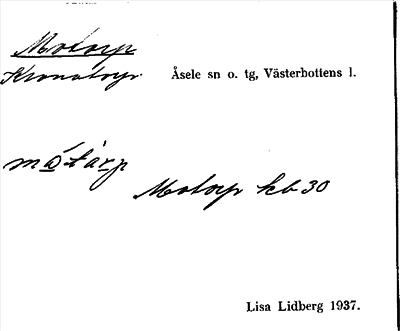 Motorp
Kronotorp Åsele sn o. tg, Västerbottens l.
mo̱tár̲p
Motorp kb 30
Lisa Lidberg 1937.